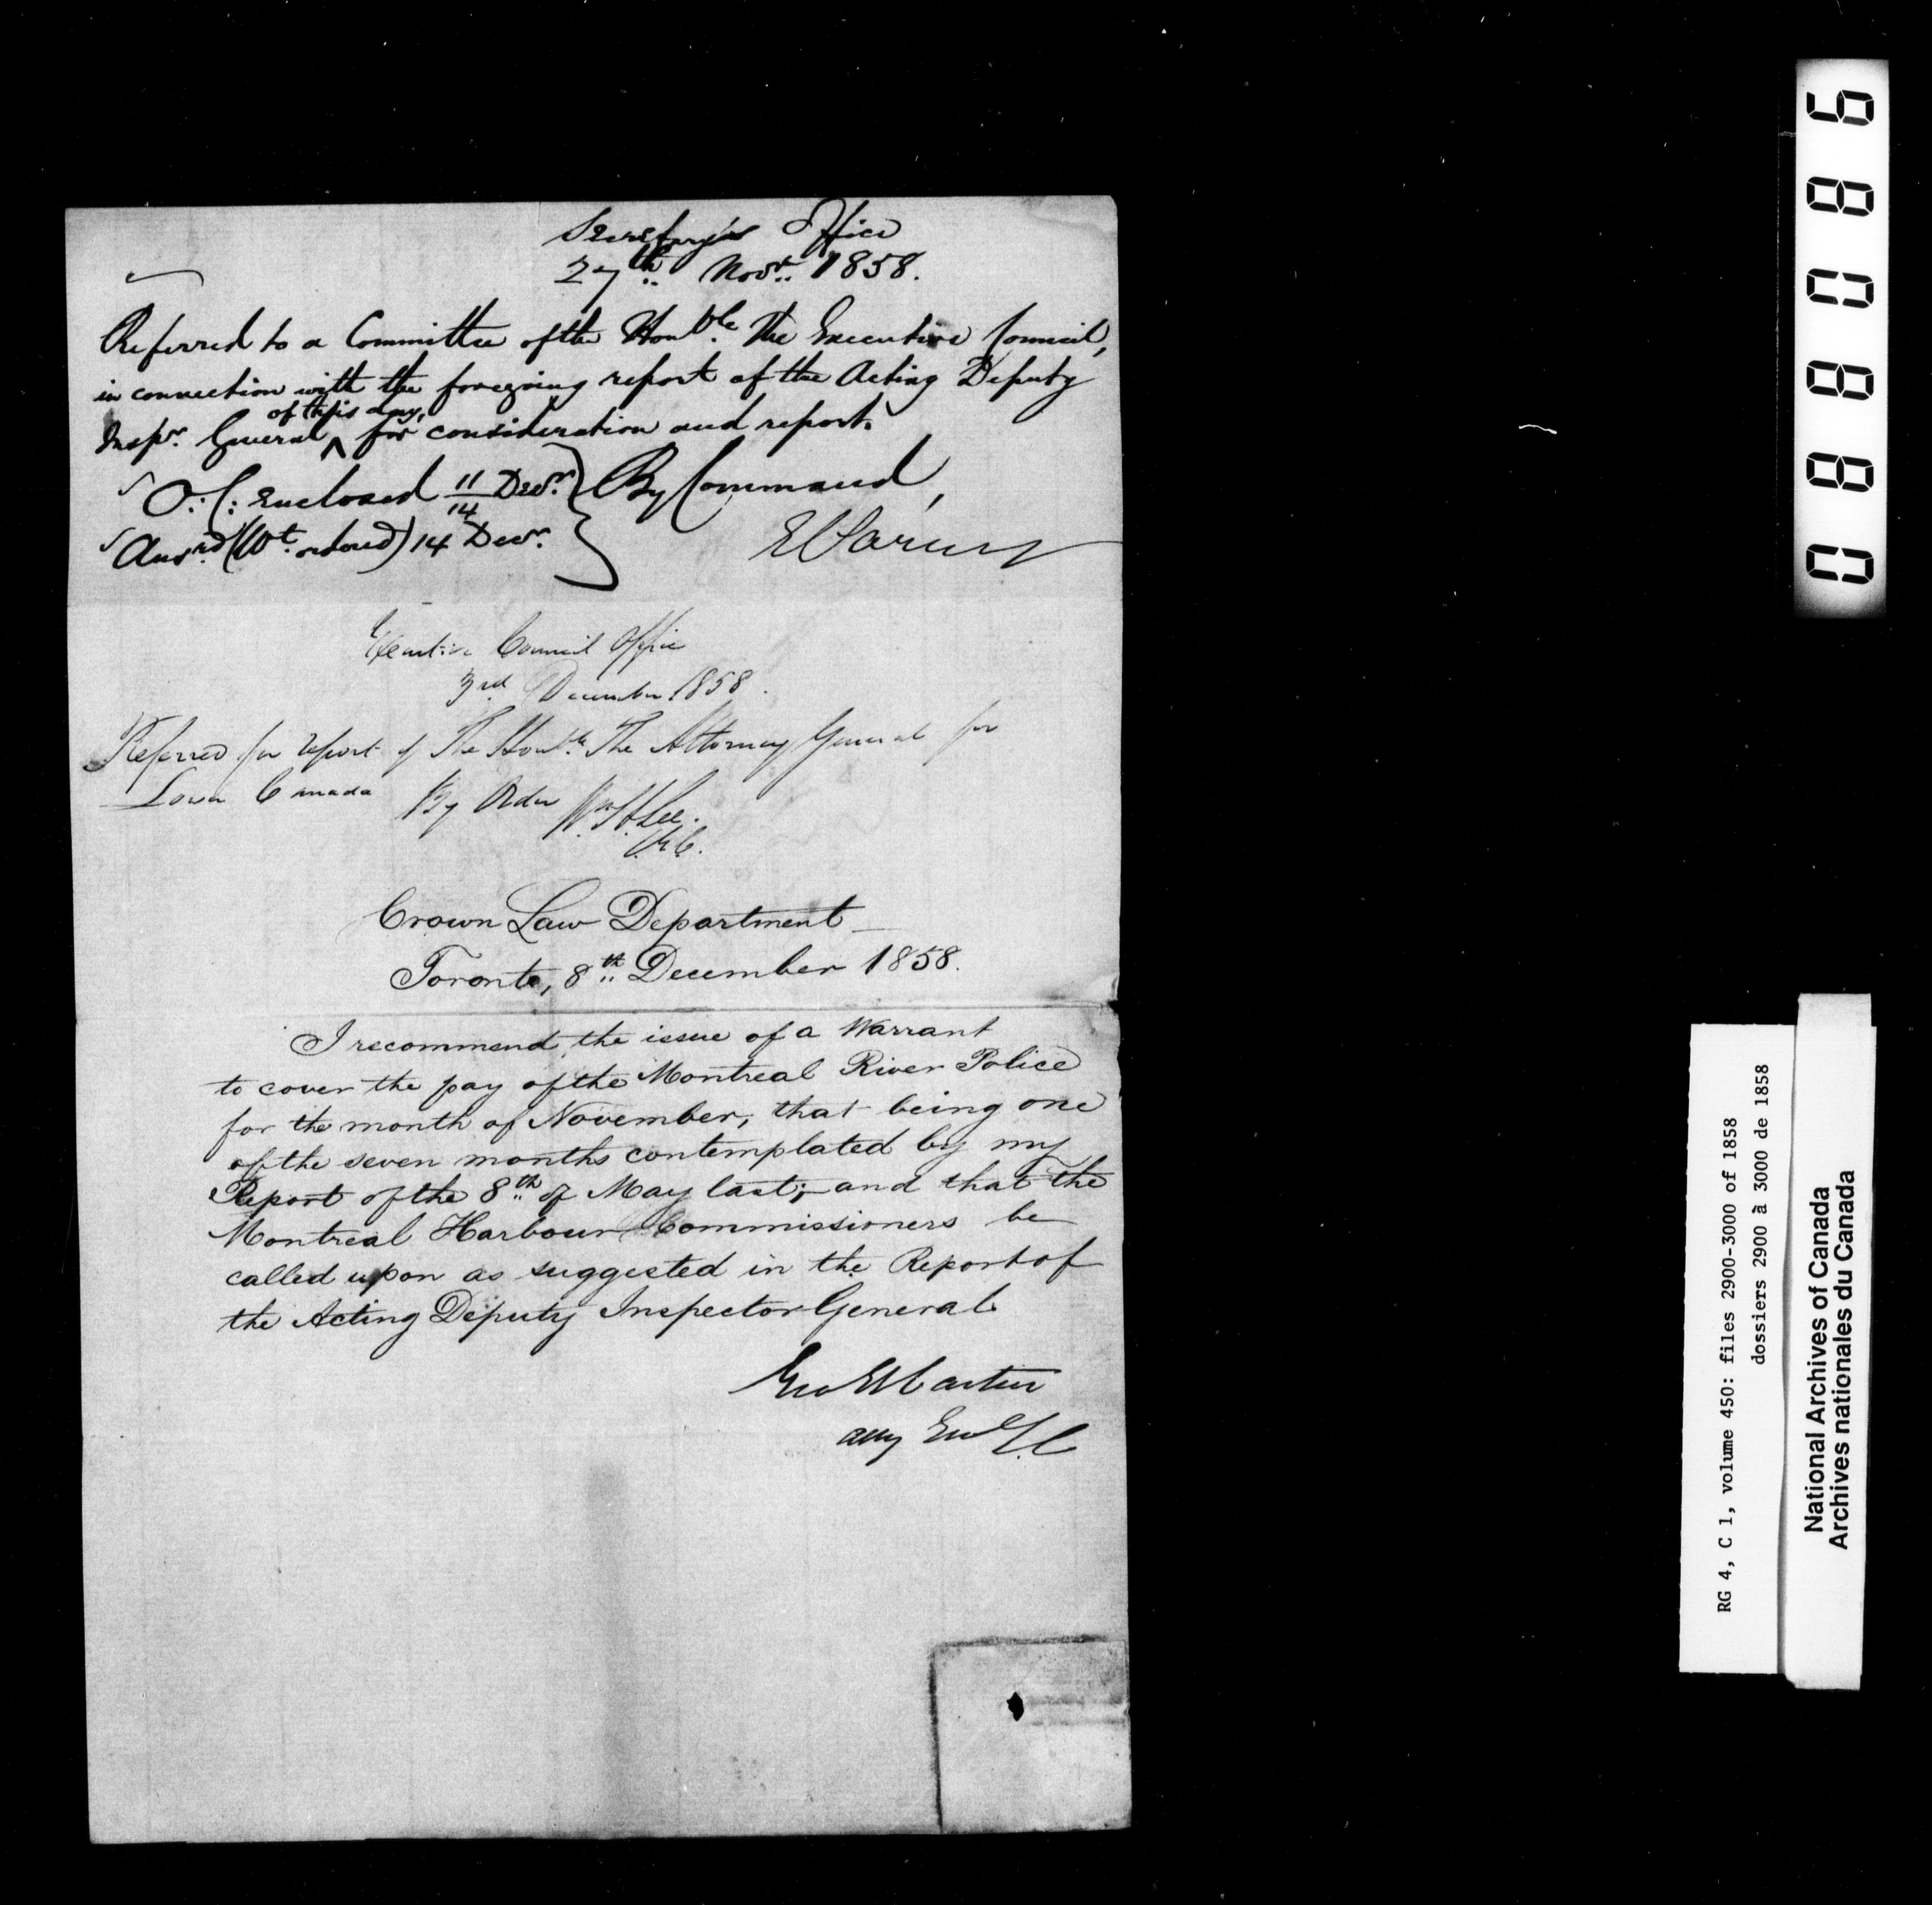 Secretary's Office
27th Novr. 1858.
Referred to a Committee of the Honble. The Executive Council,
in connection with the foregoing report of the Acting Deputy
of this day,
Inspr. General ^ for consideration and report.
O. C. Enclosed 11/14 Decr. } By Command,
Ansrd (Wt. ordered) 14 Decr.
Executive Council Office
3rd December 1858.
Referred for report of The Honble. The Attorney General for
Lower Canada By Order Wm H Lee.
Crown Law Department
Toronto, 8th December 1858.
I recommend the issue of a Warrant
to cover the pay of the Montreal River Police
for the month of November, that being one
of the seven months contemplated by my
Report of the 8th of May last; and that the
Montreal Harbour Commissioners be
called upon as suggested in the Report of
the Acting Deputy Inspector General
Geo E Cartier
Atty Genl L. C
088086
RG 4, C 1, volume 450: files 2900-3000 of 1858
dossiers 2900 à 3000 de 1858
National Archives of Canada
Archives nationales du Canada